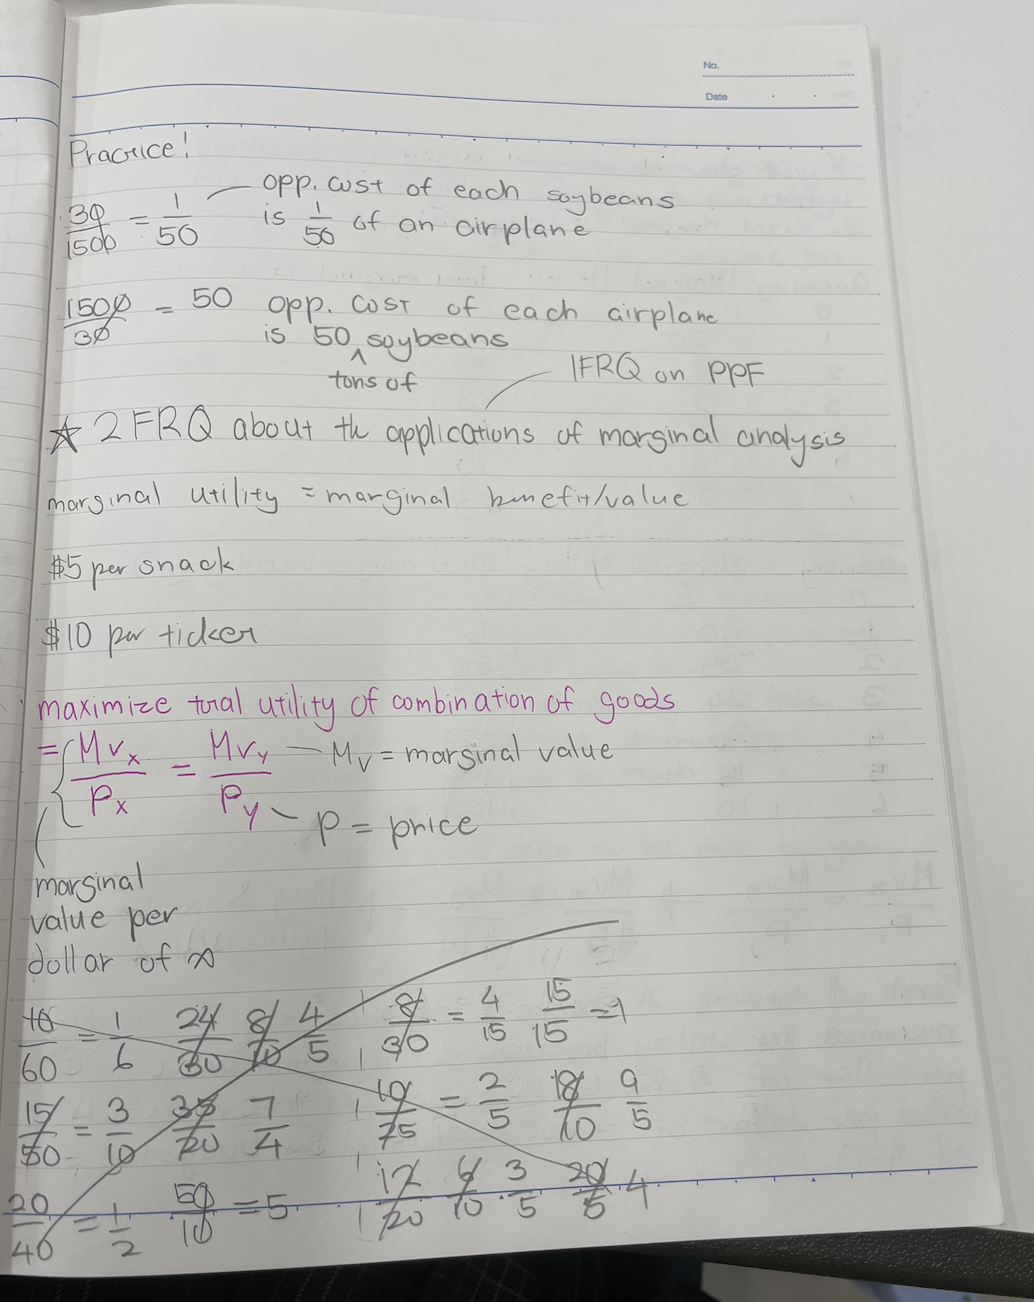 No.
Date
Practice!
30/1500 = 1/50 opp. cost of each soybeans
is 1/50 of an airplane
1500/30 = 50 opp. cost of each airplane
is 50 ^ soybeans
tons of
1FRQ on PPF
☆ 2 FRQ about th applications of marginal analysis
marginal utility = marginal benefit/value
$5 per snack
$10 per ticket
maximize total utility of combination of goods
= { MVx/Px = MVy/Py — MV = marginal value
P = price
marginal
value per
dollar of x
10/60 = 1/6 24/30 8/10 4/5 8/30 = 4/15 15/15 = 1
15/50 = 3/10 35/20 7/4 10/25 = 2/5 18/10 9/5
20/40 = 1/2 50/10 = 5 12/20 6/10 3/5 20/5 4